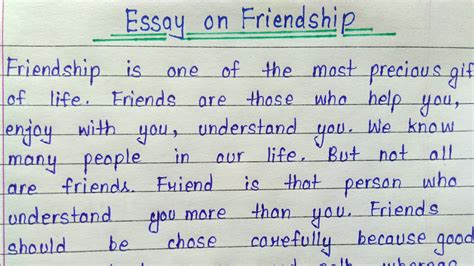 Essay on Friendship
Friendship is one of the most precious gif
of life. Friends are those who help you,
enjoy with you, understand you. We know
many people in our life. But not all
are friends. Friend is that person who
understand you more than you. Friends
should be chose carefully because good